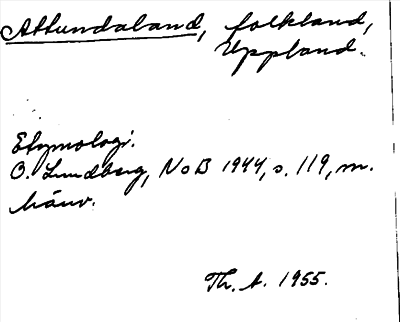 Attundaland, folkland,
Uppland.
Etymologi.
O. Lundberg, NoB 1944, s. 119, m.
hänv.
Th. A. 1955.